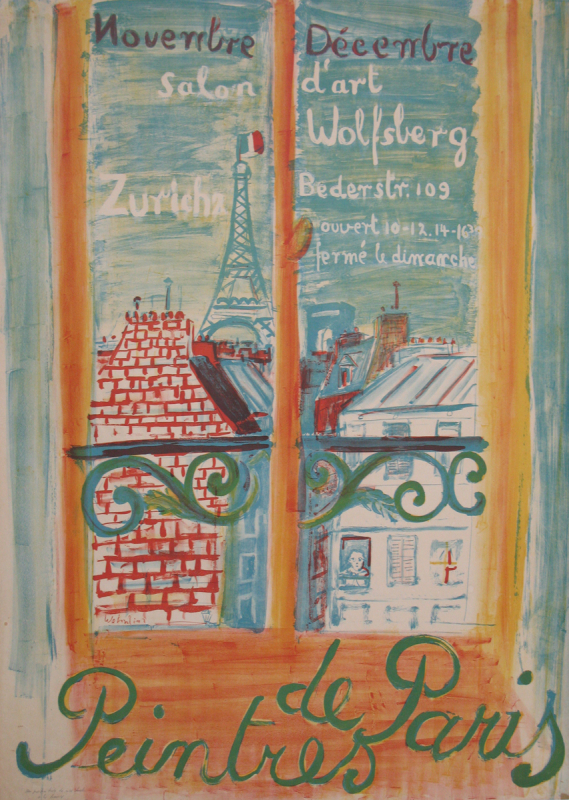 Novembre Décembre
Salon d'art
Wolfsberg
Zurich 2
Bederstr. 109
ouvert 10-12. 14-16³⁰
fermé le dimanche
Peintres de Paris